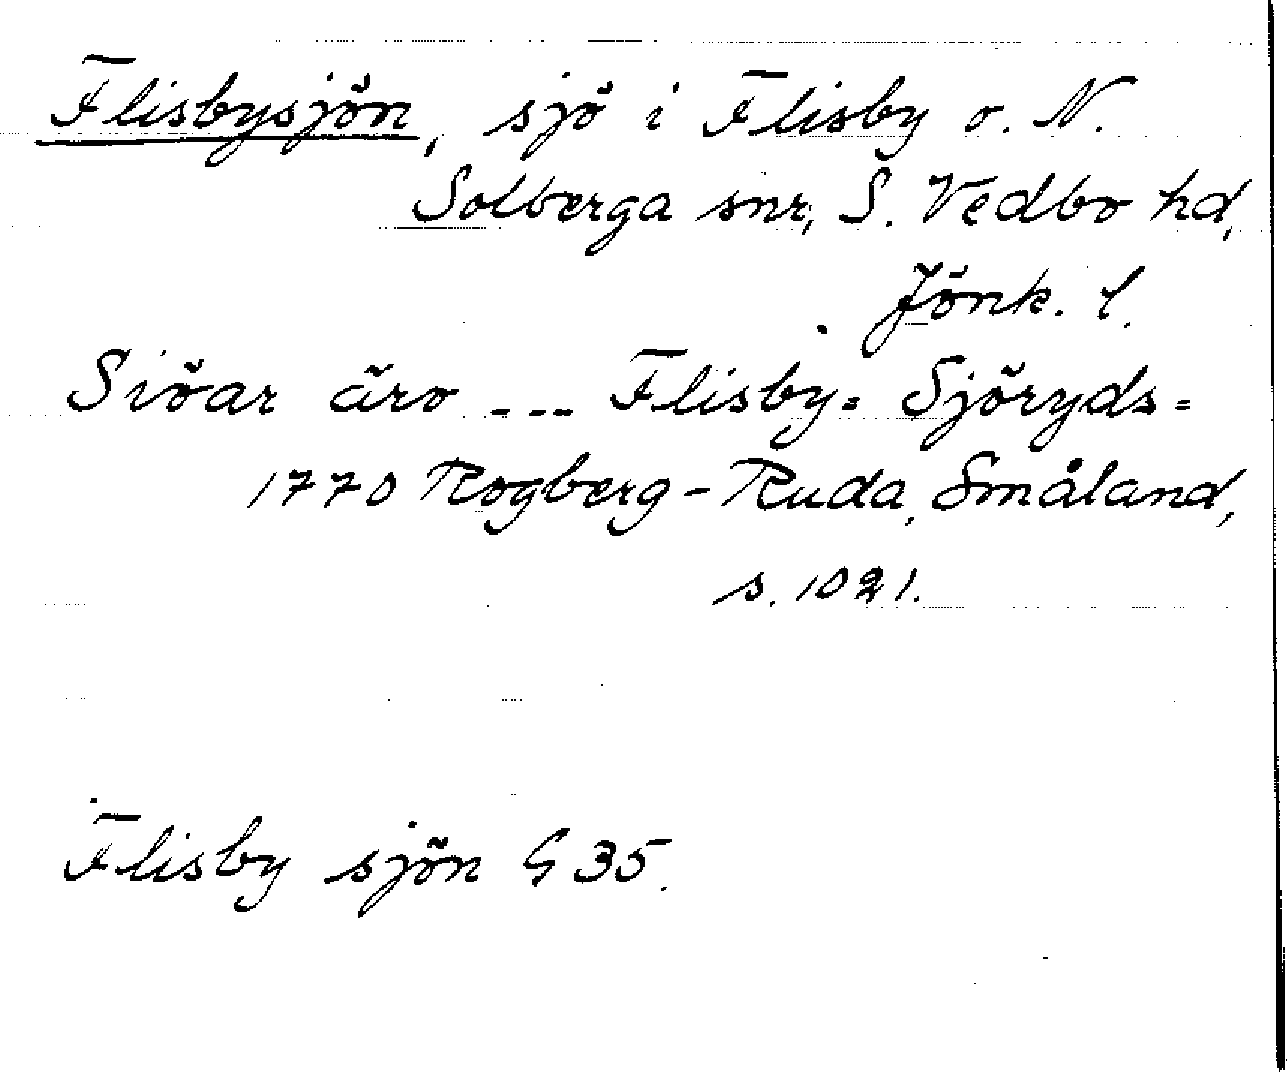 Flisbysjön, sjö i Flisby o. N.
Solberga snr, S. Vedbo hd,
Jönk. l.
Siöar äro --- Flisby= Sjöryds=
1770 Rogberg-Ruda, Småland,
s. 1021.
Flisby sjön G 35.